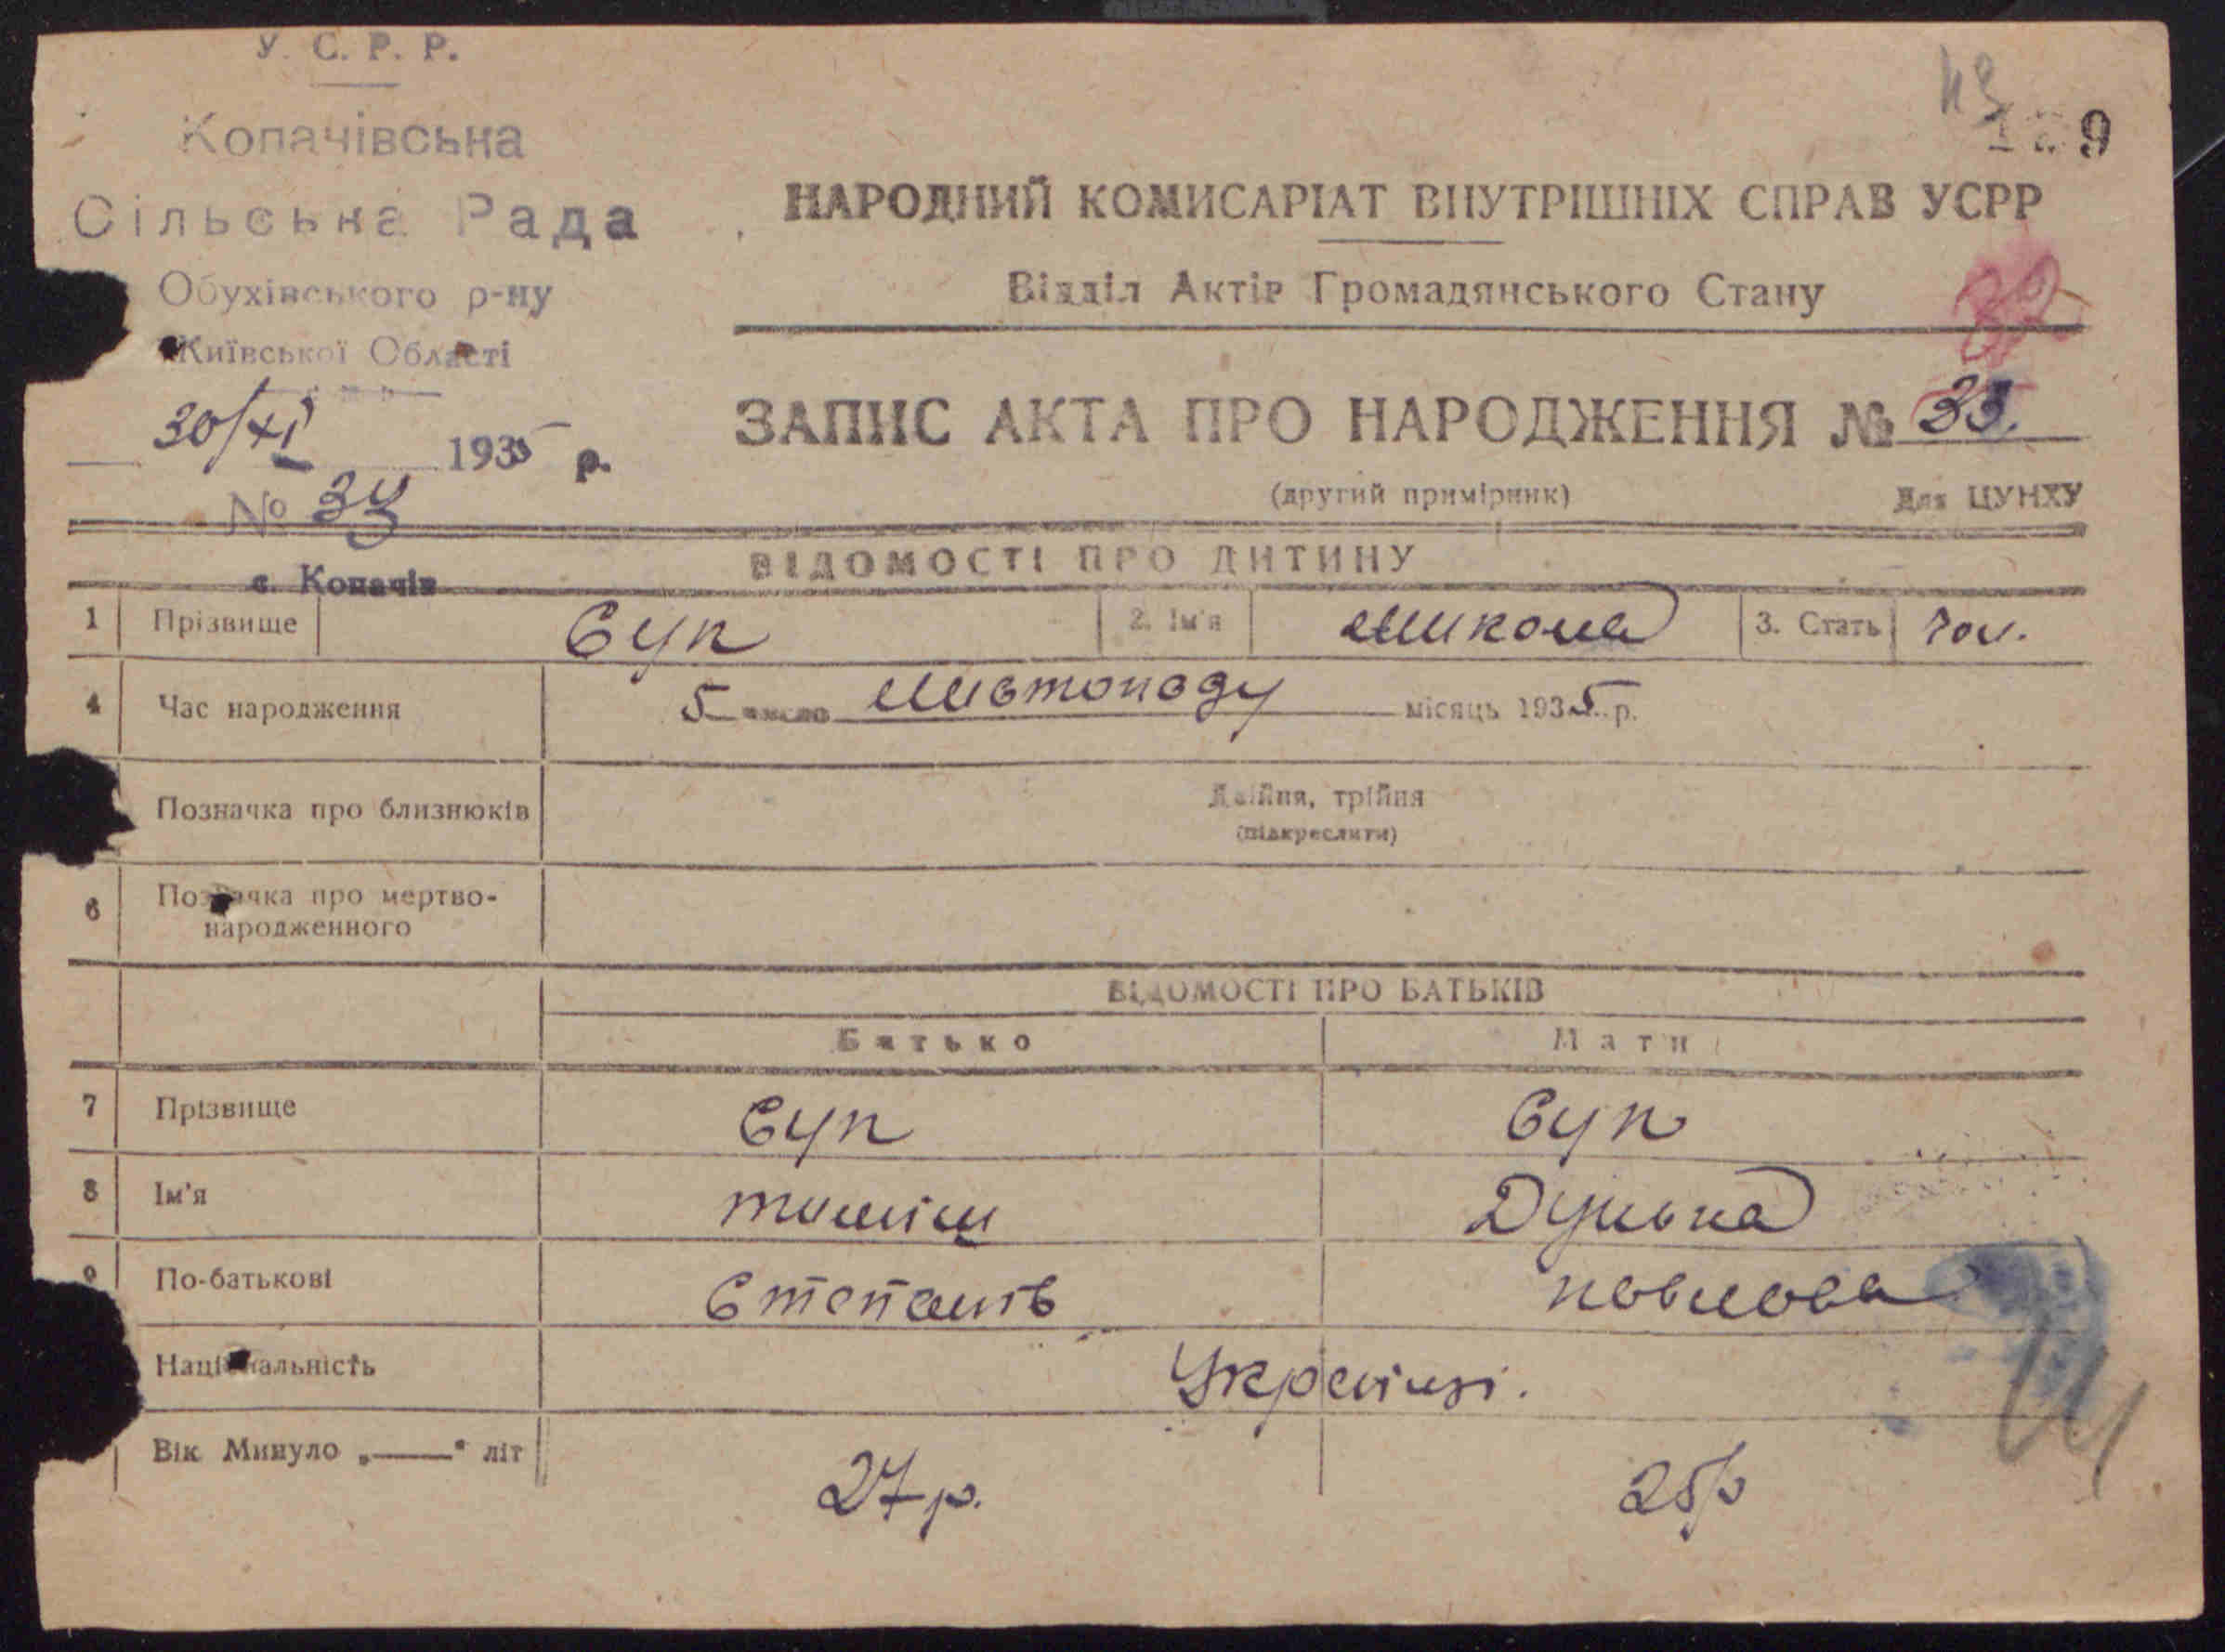 У. С. Р. Р.
Копачівська
Сільська Рада
Обухівського р-ну
Київської Області
30/XI 1935 р.
№ 33
с. Копачів
9
НАРОДНИЙ КОМИСАРІАТ ВНУТРІШНІХ СПРАВ УСРР
Відділ Актів Громадянського Стану
ЗАПИС АКТА ПРО НАРОДЖЕННЯ № 33.
(другий примірник) Для ЦУНХУ
ВІДОМОСТІ ПРО ДИТИНУ
1 Прізвище Суп 2. Ім'я Микола 3. Стать Чол.
4 Час народження 5 число Листопаду місяць 1935 р.
Позначка про близнюків Двійня, трійня
(підкреслити)
6 Позначка про мертво-
народженного
ВІДОМОСТІ ПРО БАТЬКІВ
Батько Мати
7 Прізвище Суп Суп
8 Ім'я Тиміш Дунька
9 По-батькові Степанів Павлова
Національність Українці.
Вік Минуло „——" літ 27 р. 25 р